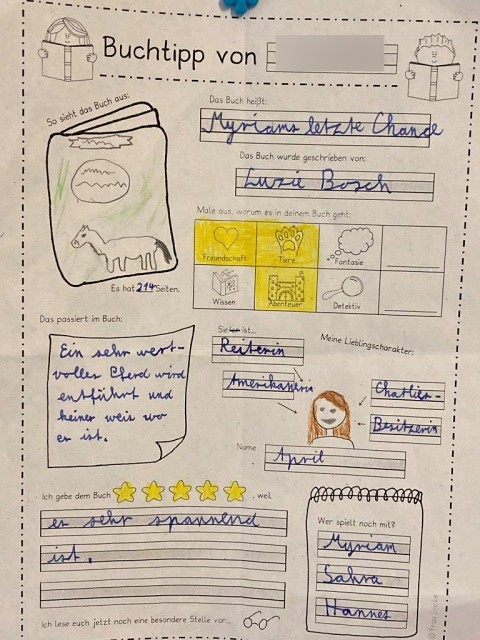 Buchtipp von
So sieht das Buch aus:
Das Buch heißt:
Myriams letzte Chance
Das Buch wurde geschrieben von:
Luzie Bosch
Male aus, worum es in deinem Buch geht:
Freundschaft
Tiere
Fantasie
Wissen
Abenteuer
Detektiv
Es hat 214 Seiten.
Das passiert im Buch:
Ein sehr wert-
volles Pferd wird
entführt und
keiner weis wo
er ist.
Sie/er ist...
Reiterin
Amerikanerin
Meine Lieblingscharakter:
Besitzerin
Name
April
Ich gebe dem Buch
, weil
er sehr spannend
ist.
Wer spielt noch mit?
Myriam
Sahra
Hannes
Ich lese euch jetzt noch eine besondere Stelle vor...